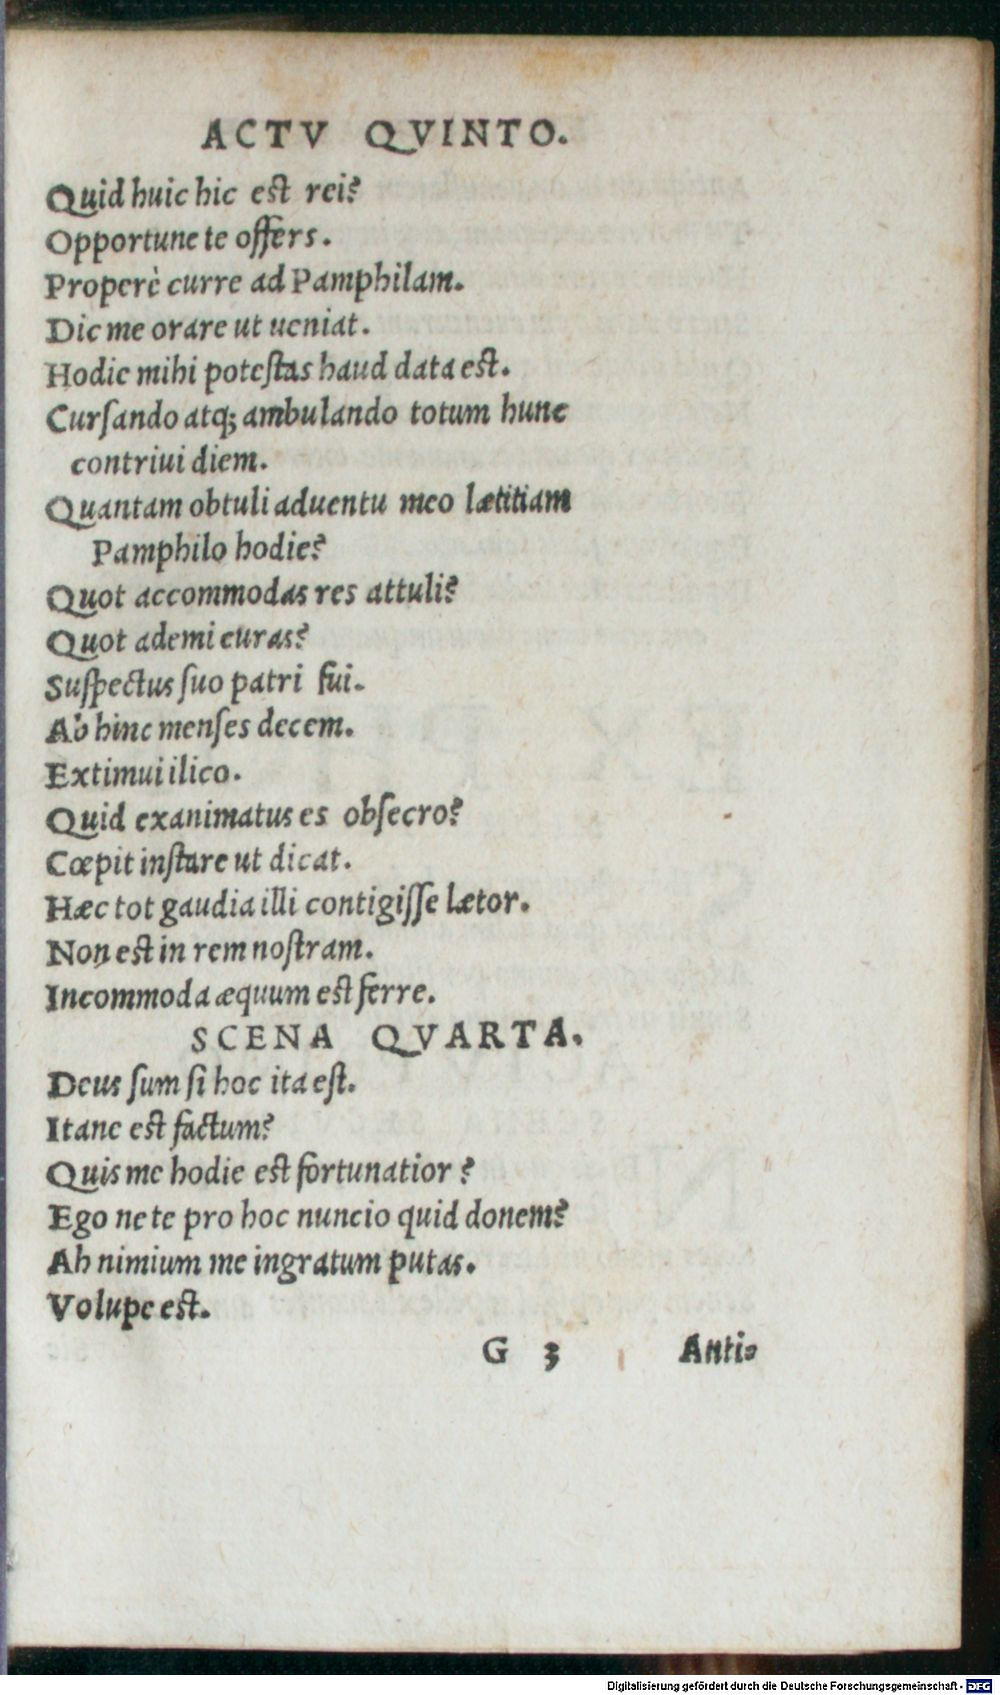 ACTV QVINTO.
Quid huic hic est rei?
Opportune te offers.
Properè curre ad Pamphilam.
Dic me orare ut ueniat.
Hodie mihi potestas haud data est.
Cursando atq; ambulando totum hunc
contriui diem.
Quantam obtuli aduentu meo lætitiam
Pamphilo hodie?
Quot accommodas res attuli?
Quot ademi curas?
Suspectus suo patri fui.
Ab hinc menses decem.
Extimui ilico.
Quid exanimatus es obsecro?
Cœpit instare ut dicat.
Hæc tot gaudia illi contigisse lætor.
Non est in rem nostram.
Incommoda æquum est ferre.
SCENA QVARTA.
Deus sum si hoc ita est.
Itane est factum?
Quis me hodie est fortunatior?
Ego ne te pro hoc nuncio quid donem?
Ah nimium me ingratum putas.
Volupe est.
G 3 Anti-
Digitalisierung gefördert durch die Deutsche Forschungsgemeinschaft - DFG